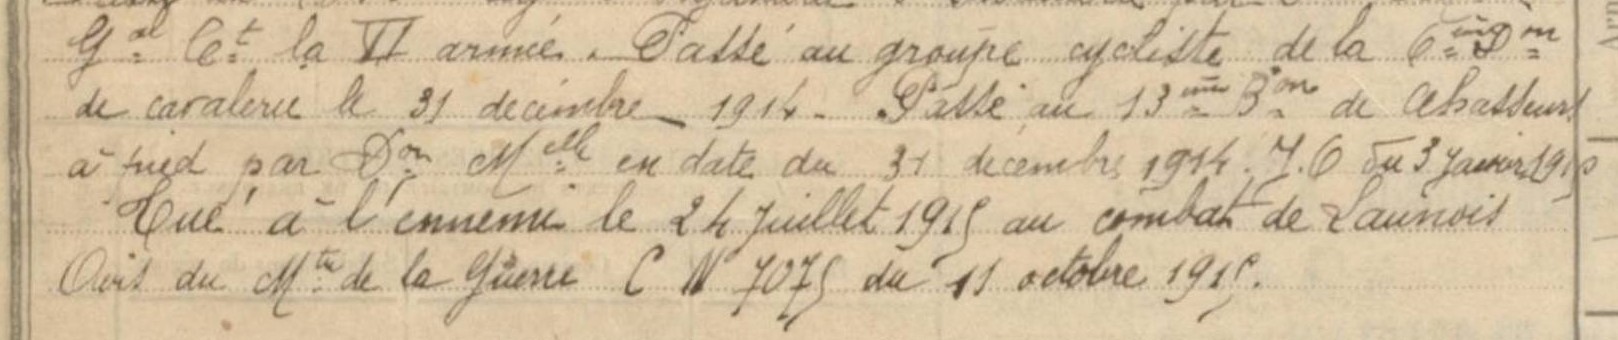 Gal Ct la VI armée. Passé au groupe cycliste de la 6ème Don
de cavalerie le 31 decembre 1914. Passé au 13ème Bon de Chasseurs
à pied par Don Melle en date du 31 decembre 1914. J.O du 3 Janvier 1915
Tué à l'ennemi le 24 Juillet 1915 au combat de Launois
Avis du Mtre de la Guerre C N 7075 du 11 octobre 1915.